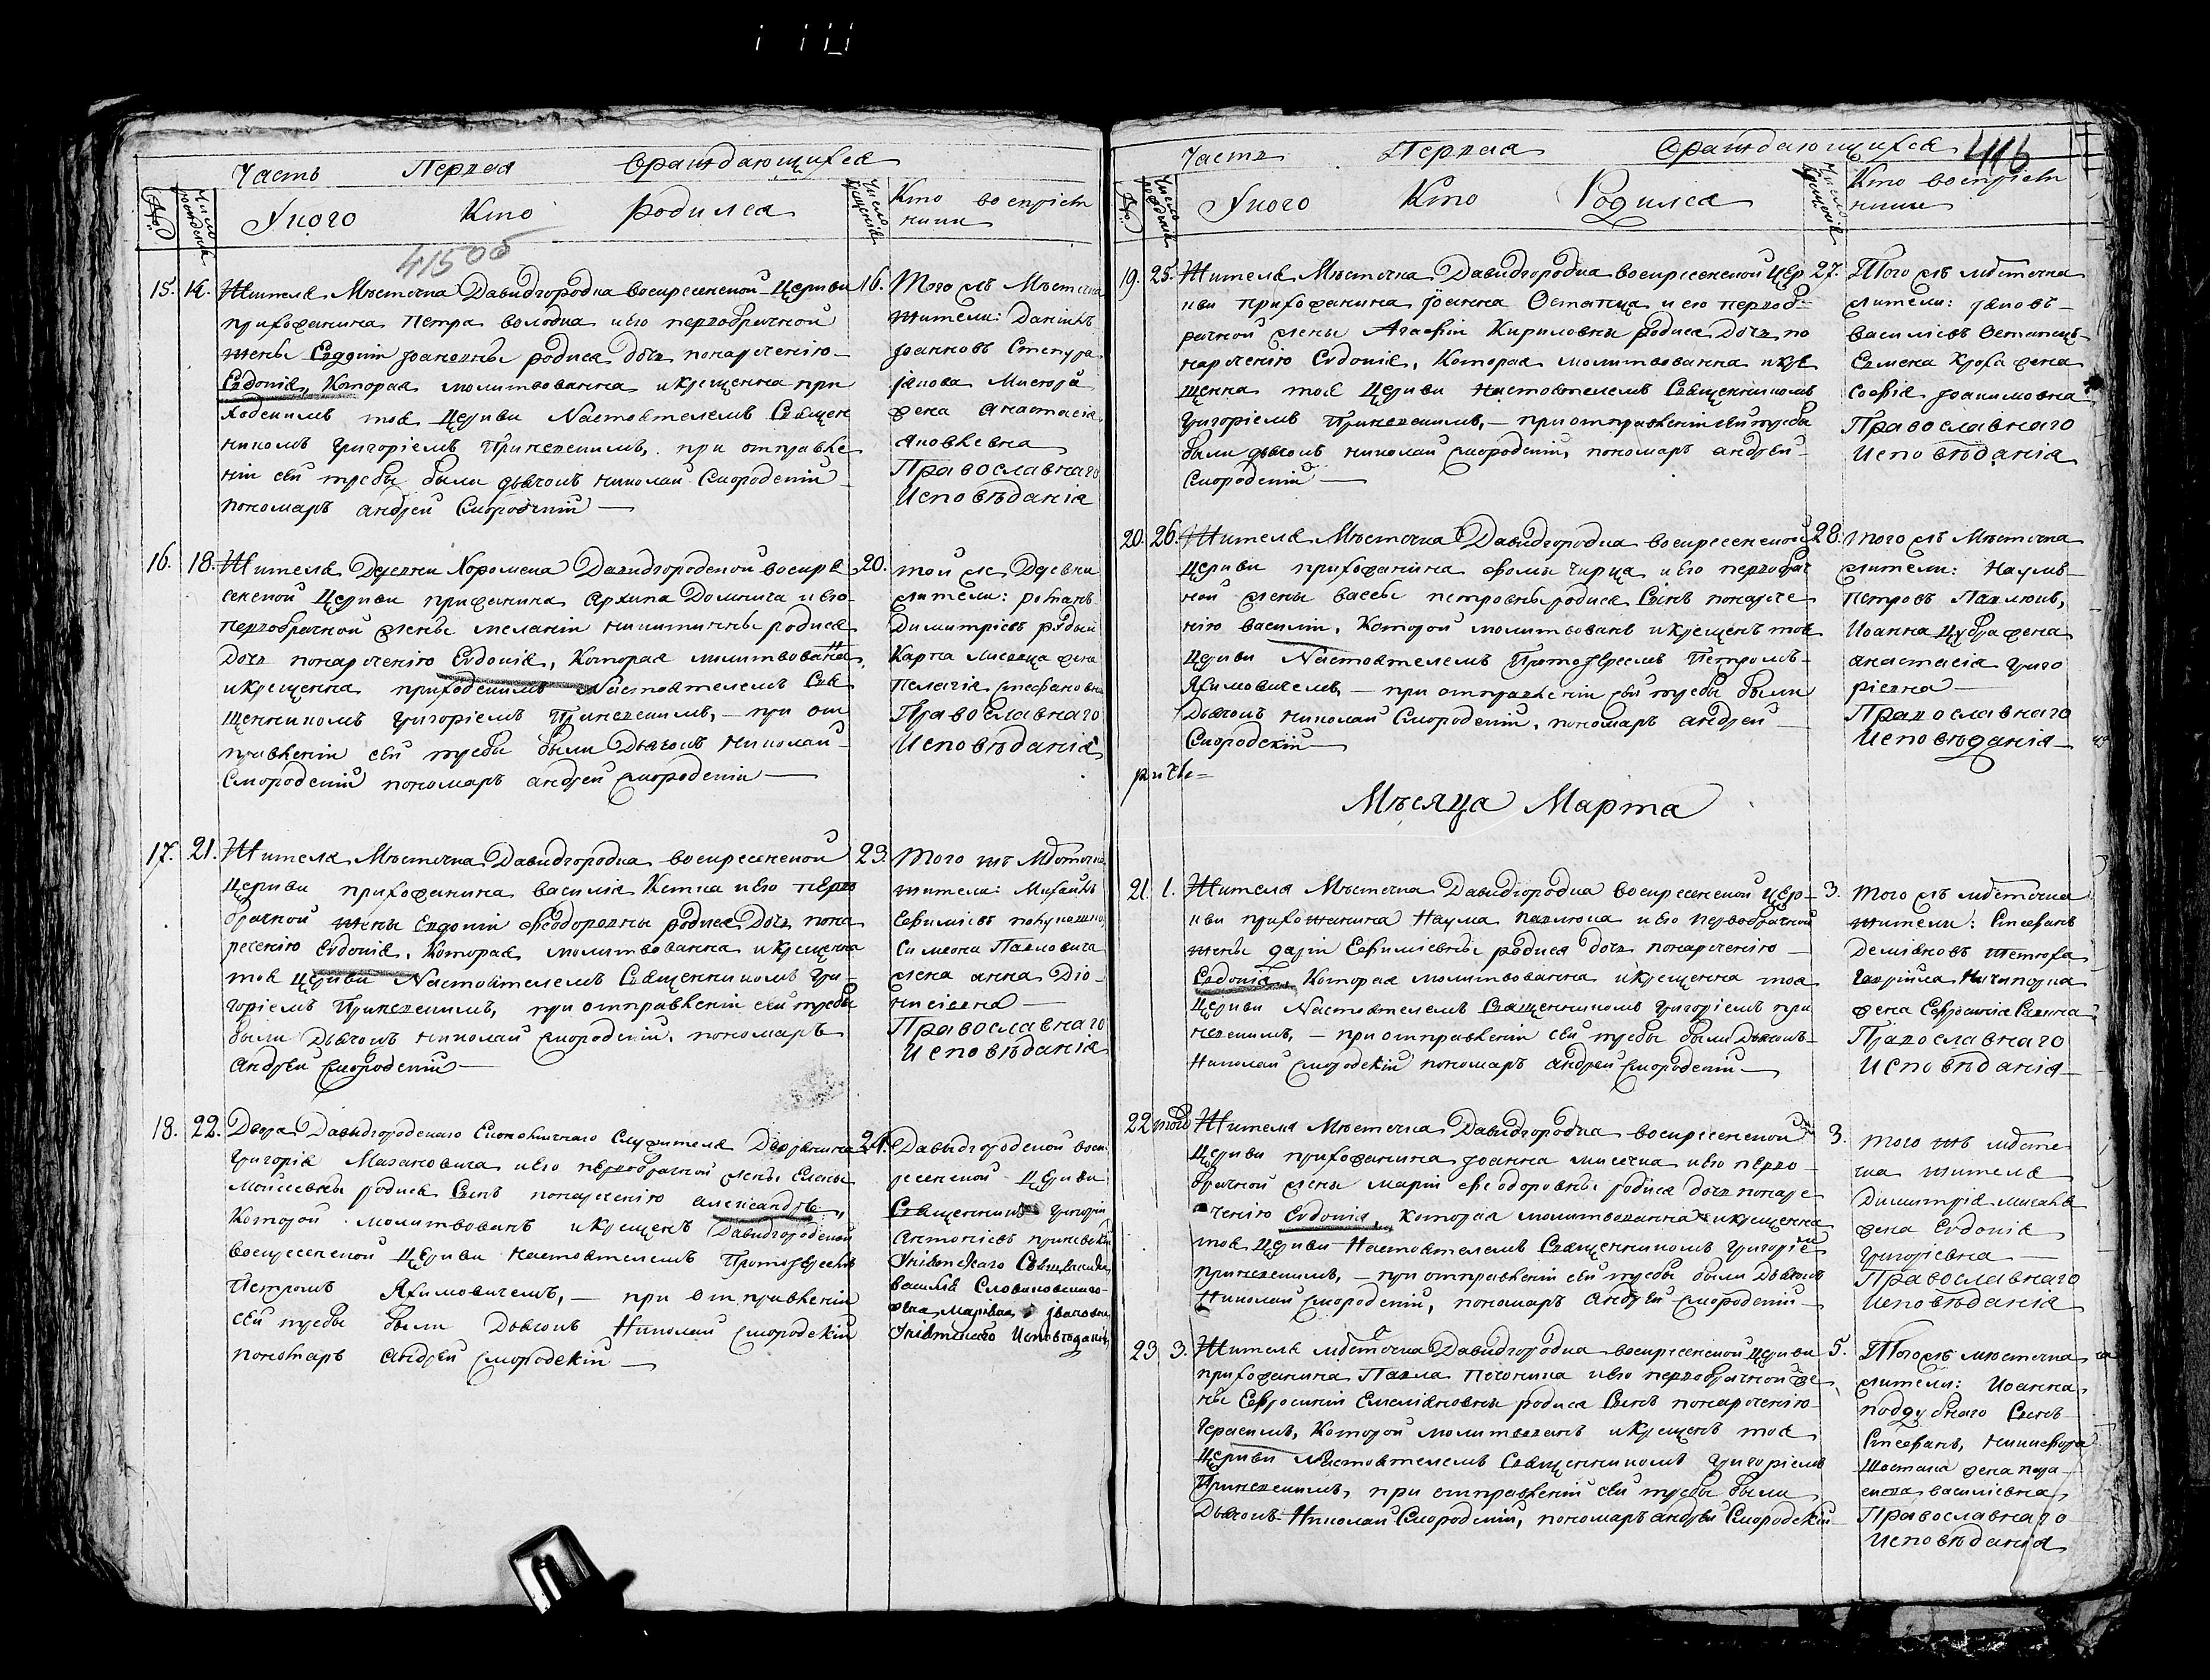 Часть Первая ораждающихся
№ Число рождения
Укого Кто родился
Число крещенія
Кто воспріем
ники
415об
15. 14. Жителя Мѣстечка Давидгородка воскресенской Церкви
прихожанина Петра володка иего первобрачной
жены Евдокіи Іоановны родися дочь понаречению
Евдокія, Которая молитвованна икрещенна при
ходскимъ тоя Церкви Настоятелемъ Священ
никомъ Григоріемъ Приневскимъ, при отправле
ніи сей требы были дьячокъ николай Смородскій
пономаръ андрей Смородскій
16. Того жъ Мѣстечка
жители: Даніилъ
Іоанновъ
Іакова
жена анастасія
Яковлевна
Православнаго
Исповѣданія
16. 18. Жителя Деревни Хоромска Давидгородской воскре
сенской Церкви прихожанина Архипа иего
первобрачной жены меланіи никитичны родися
Дочь понаречению Евдокія, Которая молитвованна
икрещенна приходскимъ Настоятелемъ Свя
щенникомъ Григоріемъ Приневскимъ, при от
правленіи сей требы были Дьячокъ николай
Смородскій пономаръ андрей Смородскій
20. той же Деревни
жители: романъ
Димитріевъ
Карпа жена
Пелагія стефановна
Православнаго
Исповѣданія
17. 21. Жителя Мѣстечка Давидгородка воскресенской
Церкви прихожанина василія иего перво
брачной жены Евдокіи Феодоровны родися Дочь пона
речению Евдокія, Которая молитвованна икрещенна
тоя Церкви Настоятелемъ Священникомъ Гри
горіемъ Приневскимъ, при отправленіи сей требы
были Дьячокъ николай Смородскій, пономаръ
андрей Смородскій
23. того жъ Мѣстечка
жители: Михаилъ
Ефиміевъ
Симеона Павловича
жена анна Діо
нисіевна
Православнаго
Исповѣданія
18. 22. Двора Давидгородскаго Економичнаго Служителя Дворянина
Григорія Мазановича иего первобрачной жены Елены
Моисеевны родися Сынъ понаречению александръ,
Которой молитвованъ икрещенъ Давидгородской
воскресенской Церкви настоятелемъ Протоіереемъ
Петромъ Якимовичемъ, при отправленіи
сей требы были Дьячокъ Николай Смородскій
пономаръ андрей Смородскій
24. Давидгородской воск
ресенской Церкви
Священникъ Григорій
Антоніевъ приневскій
Уніятскаго
василія
жена Марія
Уніятскаго Исповѣданія
Часть Первая ораждающихся 416
№ Число рожденія
Укого Кто Родился
Число крещенія
Кто воспріем
ники
19. 25. Жителя Мѣстечка Давидгородка воскресенской Цер
кви прихожанина Іоанна Остапца и его первоб
рачной жены Агафіи Кириловны родися Дочь по
наречению Евдокія, Которая молитвованна икре
щенна тоя Церкви Настоятелемъ Священникомъ
Григоріемъ Приневскимъ, при отправленіи сей требы
были дьячокъ николай Смородскій, пономаръ андрей
Смородскій
27. Того жъ мѣстечка
жители: Іаковъ
василіевъ Остапецъ
Семена жена
Софія Іоакимовна
Православнаго
Исповѣданія
20. 26. Жителя Мѣстечка Давидгородка воскресенской
Церкви прихожанина Фомы чирца иего первобрач
ной жены вассы петровны родися Сынъ понарече
нію василій, Которой молитвованъ икрещенъ тоя
Церкви Настоятелемъ Протоіереемъ Петромъ
Якимовичемъ, при отправленіи сей требы были
Дьячокъ николай Смородскій, пономаръ андрей
Смородскій
28. того жъ Мѣстечка
жители: Наумъ
Петровъ Павлюкъ,
Иоанна жена
анастасія григо
ріевна
Православнаго
Исповѣданія
Мѣсяца Марта
21. 1. Жителя Мѣстечка Давидгородка воскресенской Цер
кви прихожанина Наума павлюка иего первобрачной
жены даріи Ефиміевны родися дочь понаречению
Евдокія, Которая молитвованна икрещенна тоя
Церкви Настоятелемъ Священникомъ Григоріемъ при
невскимъ, при отправленіи сей требы были Дьячокъ
Николай Смородскій пономаръ андрей Смородскій
3. того жъ мѣстечка
жители: Стефанъ
Демяновъ
Гавріила Ничипорка
жена Ефросинія
Православнаго
Исповѣданія
22 того Жителя Мѣстечка Давидгородка воскресенской
Церкви прихожанина Іоанна мисечка иего перво
брачной жены маріи феодоровны родися дочь понаре
чению Евдокія, которая молитвованна икрещенна
тоя Церкви Настоятелемъ Священникомъ Григоріе
приневскимъ, при отправленіи сей требы были Дьячокъ
Николай Смородскій, пономаръ андрей Смородскій
3. того жъ мѣсте
чка жителя
Димитрія
жена Евдокія
Григоріевна
Православнаго
Исповѣданія
23 3. Жителя мѣстечка Давидгородка воскресенской Церкви
прихожанина Павла иего первобрачной же
ны Ефросиніи Емеліяновны родися Сынъ понаречению
Герасимъ, Которой молитвованъ икрещенъ тоя
Церкви Настоятелемъ Священникомъ Григоріемъ
Приневскимъ, при отправленіи сей требы были
Дьячокъ Николай Смородскій, пономаръ андрей Смородскій
5. Тогожъ мѣстечка
жители: Иоанна
поддубнаго Сынъ
Стефанъ, никифора
Шостака жена пара
скева василіевна
Православнаго
Исповѣданія